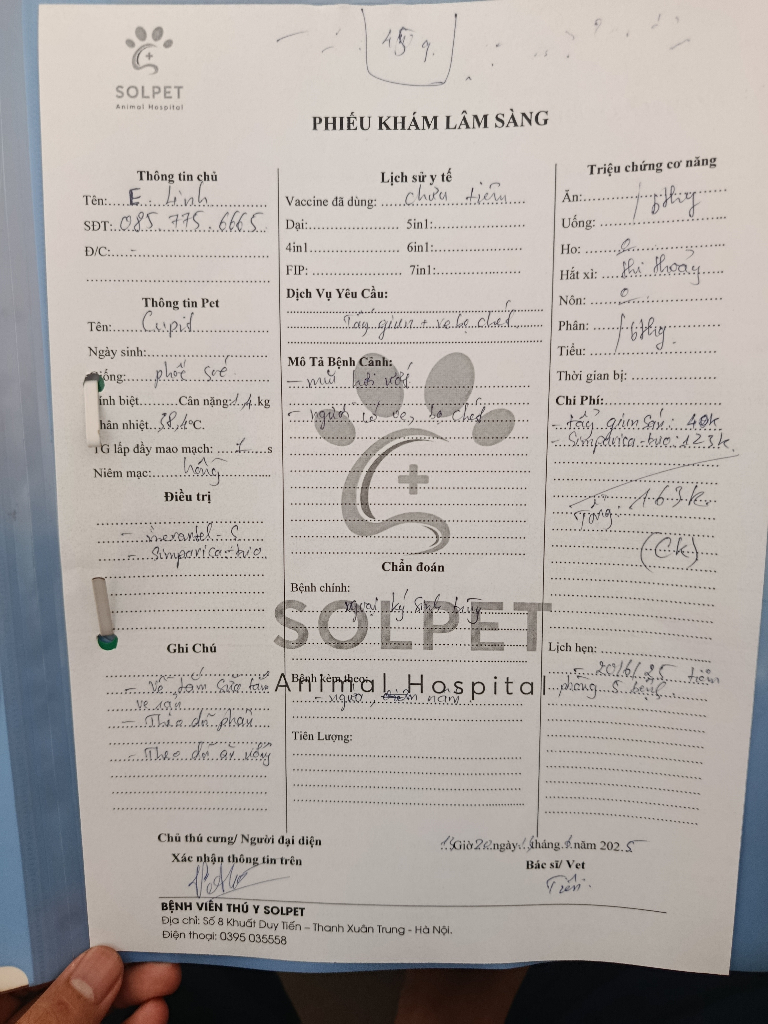 459.
SOLPET
Animal Hospital
PHIẾU KHÁM LÂM SÀNG
Thông tin chủ
Tên: E. Linh
SĐT: 085. 775. 6665
Đ/C: -
Thông tin Pet
Tên: Cupid
Ngày sinh:
Giống: phốc sóc
Tính biệt Cân nặng: 1,4 kg
Thân nhiệt 38,1 °C.
TG lấp đầy mao mạch: 1 s
Niêm mạc: hồng
Điều trị
- Simparica-trio
Ghi Chú
- Về tắm sữa tắm
ve rận
- Theo dõi phân
- Theo dõi ăn uống
Lịch sử y tế
Vaccine đã dùng: chưa tiêm
Dại: 5in1:
4in1 6in1:
FIP: 7in1:
Dịch Vụ Yêu Cầu:
Tẩy giun + ve bọ chét
Mô Tả Bệnh Cảnh:
- mũi hơi ướt
- người có ve, bọ chét
Chẩn đoán
Bệnh chính:
ngoại ký sinh trùng
SOLPET
Animal Hospital
Bệnh kèm theo:
nấm
Tiên Lượng:
Triệu chứng cơ năng
Ăn: bthg
Uống:
Ho: 0
Hắt xì: thi thoảng
Nôn: 0
Phân: bthg
Tiểu:
Thời gian bị:
Chi Phí:
- tẩy giun sán: 40k
- Simparica-trio: 123k
Tổng: 163k
(CK)
Lịch hẹn:
- 20/6/25 tiêm
phòng 5 bệnh
Chủ thú cưng/ Người đại diện
Xác nhận thông tin trên
Giờ 20 ngày tháng 6 năm 2025
Bác sĩ/ Vet
Tiến
BỆNH VIÊN THÚ Y SOLPET
Địa chỉ: Số 8 Khuất Duy Tiến – Thanh Xuân Trung - Hà Nội.
Điện thoại: 0395 035558